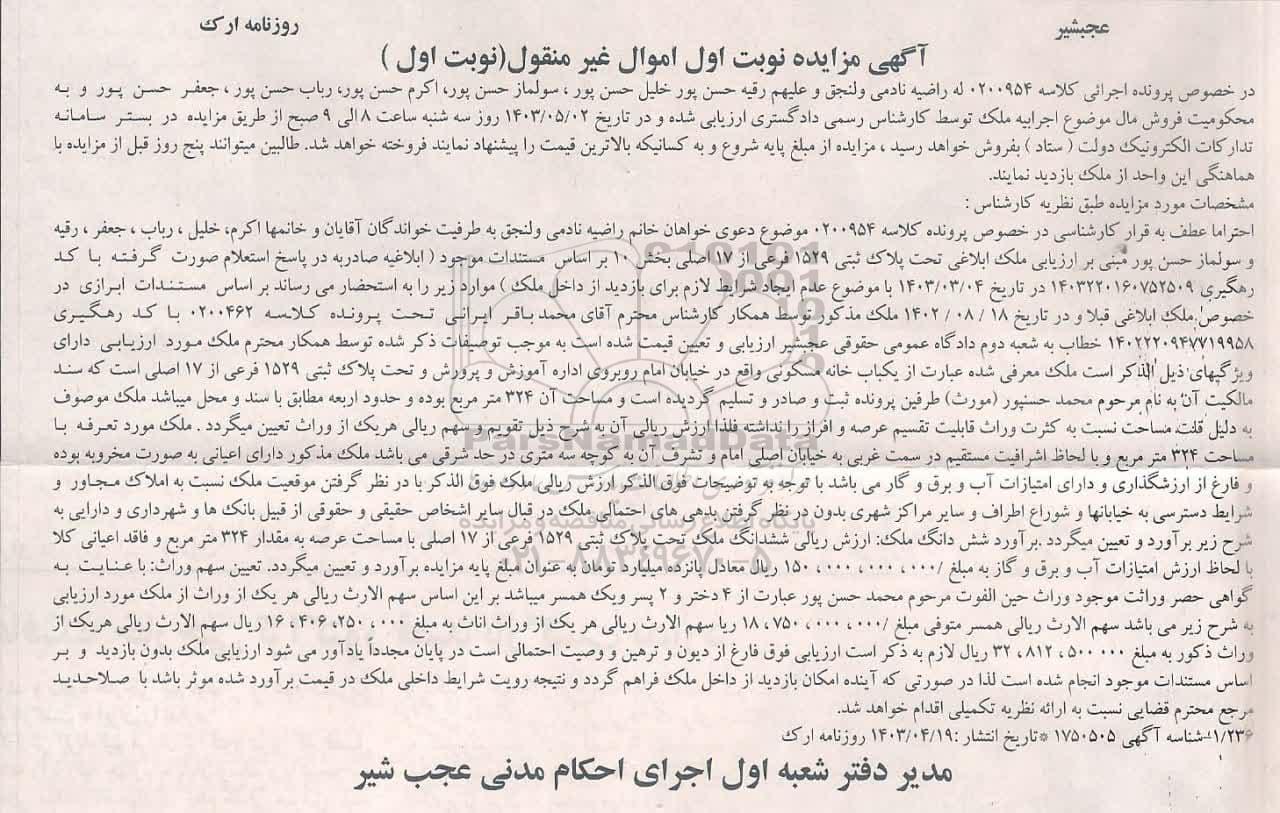 عجبشیر
روزنامه ارک
آگهی مزایده نوبت اول اموال غیر منقول(نوبت اول )
در خصوص پرونده اجرائی کلاسه ۰۲۰۰۹۵۴ له راضیه نادمی ولنجق و علیهم رقیه حسن پور خلیل حسن پور ، سولماز حسن پور، اکرم حسن پور، رباب حسن پور ، جعفر حسن پور و به
محکومیت فروش مال موضوع اجرابیه ملک توسط کارشناس رسمی دادگستری ارزیابی شده و در تاریخ ۱۴۰۳/۰۵/۰۲ روز سه شنبه ساعت ۸ الی ۹ صبح از طریق مزایده در بستر سامانه
تدارکات الکترونیک دولت ( ستاد ) بفروش خواهد رسید ، مزایده از مبلغ پایه شروع و به کسانیکه بالاترین قیمت را پیشنهاد نمایند فروخته خواهد شد. طالبین میتوانند پنج روز قبل از مزایده با
هماهنگی این واحد از ملک بازدید نمایند.
مشخصات مورد مزایده طبق نظریه کارشناس :
احتراما عطف به قرار کارشناسی در خصوص پرونده کلاسه ۰۲۰۰۹۵۴ موضوع دعوی خواهان خانم راضیه نادمی ولنجق به طرفیت خواندگان آقایان و خانمها اکرم، خلیل ، رباب ، جعفر ، رقیه
و سولماز حسن پور مبنی بر ارزیابی ملک ابلاغی تحت پلاک ثبتی ۱۵۲۹ فرعی از ۱۷ اصلی بخش ۱۰ بر اساس مستندات موجود ( ابلاغیه صادربه در پاسخ استعلام صورت گرفته با کد
رهگیری ۱۴۰۳۲۲۰۱۶۰۷۵۲۵۰۹ در تاریخ ۱۴۰۳/۰۳/۰۴ با موضوع عدم ایجاد شرایط لازم برای بازدید از داخل ملک ) موارد زیر را به استحضار می رساند بر اساس مستندات ابرازی در
خصوص ملک ابلاغی قبلا و در تاریخ ۱۸ / ۰۸ / ۱۴۰۲ ملک مذکور توسط همکار کارشناس محترم آقای محمد باقر ایرانی تحت پرونده کلاسه ۰۲۰۰۴۶۲ با کد رهگیری
۱۴۰۲۲۲۰۹۴۷۷۱۹۹۵۸ خطاب به شعبه دوم دادگاه عمومی حقوقی عجبشیر ارزیابی و تعیین قیمت شده است به موجب توصیفات ذکر شده توسط همکار محترم ملک مورد ارزیابی دارای
ویژگیهای ذیل الذکر است ملک معرفی شده عبارت از یکباب خانه مسکونی واقع در خیابان امام روبروی اداره آموزش و پرورش و تحت پلاک ثبتی ۱۵۲۹ فرعی از ۱۷ اصلی است که سند
مالکیت آن به نام مرحوم محمد حسنپور (مورث) طرفین پرونده ثبت و صادر و تسلیم گردیده است و مساحت آن ۳۲۴ متر مربع بوده و حدود اربعه مطابق با سند و محل میباشد ملک موصوف
به دلیل قلت مساحت نسبت به کثرت وراث قابلیت تقسیم عرصه و افراز را نداشته فلذا ارزش ریالی آن به شرح ذیل تقویم و سهم ریالی هریک از وراث تعیین میگردد . ملک مورد تعرفه با
مساحت ۳۲۴ متر مربع و با لحاظ اشرافیت مستقیم در سمت غربی به خیابان اصلی امام و تشرف آن به کوچه سه متری در حد شرقی می باشد ملک مذکور دارای اعیانی به صورت مخروبه بوده
و فارغ از ارزشگذاری و دارای امتیازات آب و برق و گاز می باشد با توجه به توضیحات فوق الذکر ارزش ریالی ملک فوق الذکر با در نظر گرفتن موقعیت ملک نسبت به املاک مجاور و
شرایط دسترسی به خیابانها و شوراع اطراف و سایر مراکز شهری بدون در نظر گرفتن بدهی های احتمالی ملک در قبال سایر اشخاص حقیقی و حقوقی از قبیل بانک ها و شهرداری و دارایی به
شرح زیر برآورد و تعیین میگردد .برآورد شش دانگ ملک: ارزش ریالی ششدانگ ملک تحت پلاک ثبتی ۱۵۲۹ فرعی از ۱۷ اصلی با مساحت عرصه به مقدار ۳۲۴ متر مربع و فاقد اعیانی کلا
با لحاظ ارزش امتیازات آب و برق و گاز به مبلغ /۰۰۰، ۰۰۰، ۰۰۰، ۱۵۰ ریال معادل پانزده میلیارد تومان به عنوان مبلغ پایه مزایده برآورد و تعیین میگردد. تعیین سهم وراث: با عنایت به
گواهی حصر وراثت موجود وراث حین الفوت مرحوم محمد حسن پور عبارت از ۴ دختر و ۲ پسر ویک همسر میباشد بر این اساس سهم الارث ریالی هر یک از وراث از ملک مورد ارزیابی
به شرح زیر می باشد سهم الارث ریالی همسر متوفی مبلغ /۰۰۰، ۰۰۰، ۷۵۰، ۱۸ ریا سهم الارث ریالی هر یک از وراث اناث به مبلغ ۰۰۰، ۲۵۰، ۴۰۶، ۱۶ ریال سهم الارث ریالی هریک از
وراث ذکور به مبلغ ۰۰۰ ۵۰۰، ۸۱۲، ۳۲ ریال لازم به ذکر است ارزیابی فوق فارغ از دیون و ترهین و وصیت احتمالی است در پایان مجدداً یادآور می شود ارزیابی ملک بدون بازدید و بر
اساس مستندات موجود انجام شده است لذا در صورتی که آینده امکان بازدید از داخل ملک فراهم گردد و نتیجه رویت شرایط داخلی ملک در قیمت برآورد شده موثر باشد با صلاحدید
مرجع محترم قضایی نسبت به ارائه نظریه تکمیلی اقدام خواهد شد.
۱/۲۳۶-شناسه آگهی ۱۷۵۰۵۰۵ *تاریخ انتشار :۱۴۰۳/۰۴/۱۹ روزنامه ارک
مدیر دفتر شعبه اول اجرای احکام مدنی عجب شیر
ParsNamadData
پایگاه اطلاع رسانی مناقصه و مزایده